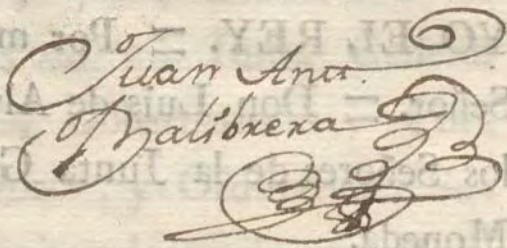 Juan Antt.
Balibrera